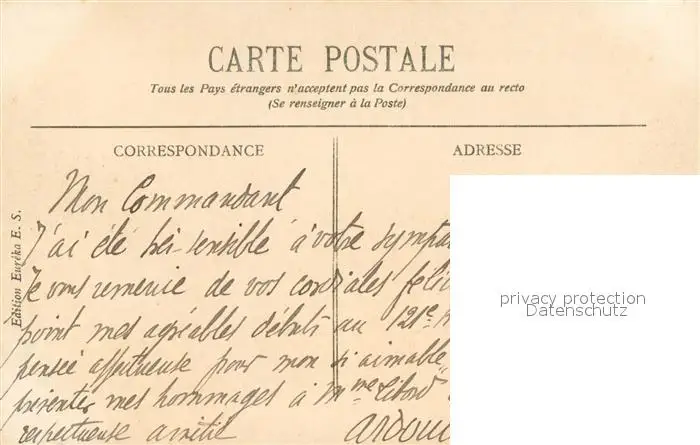 CARTE POSTALE
Tous les Pays étrangers n'acceptent pas la Correspondance au recto
(Se renseigner à la Poste)
CORRESPONDANCE
ADRESSE
Edition Eurêka E. S.
Mon Commandant
J'ai été très sensible à votre sympa
Je vous remercie de vos cordiales félic
point mes agréables débuts au 121e
pensée affectueuse pour mon si aimable
présenter mes hommages à Mme
respectueuse amitié
privacy protection
Datenschutz